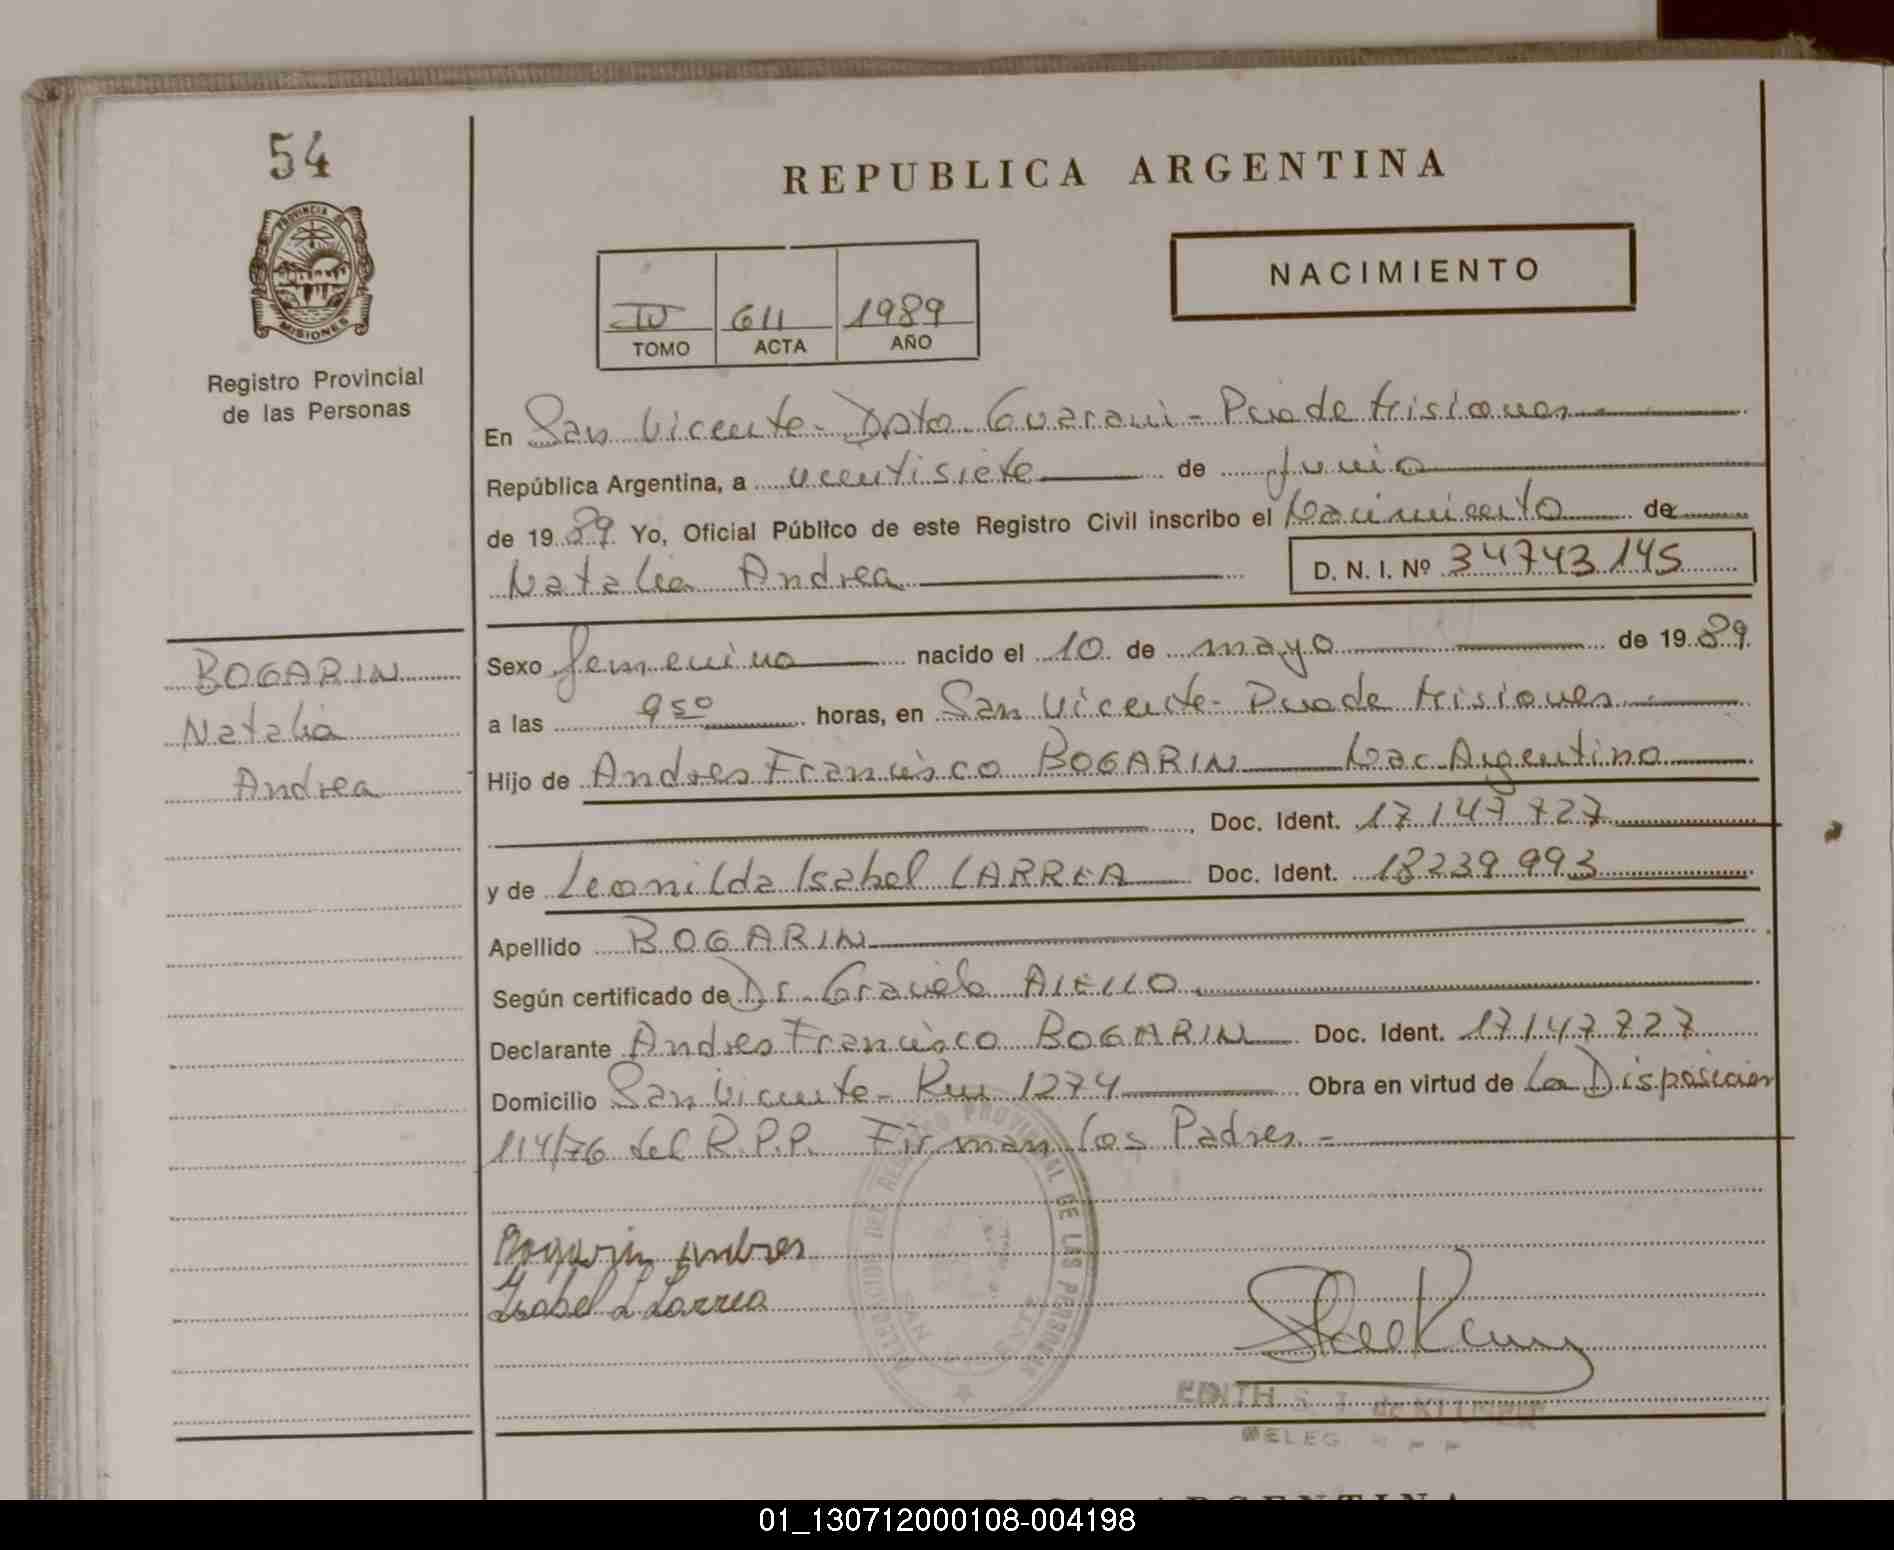 54
REPUBLICA ARGENTINA
PROVINCIA DE
MISIONES
Registro Provincial
de las Personas
NACIMIENTO
IV 611 1989
TOMO ACTA AÑO
En San Vicente - Dpto Guarani - Pcia de Misiones
República Argentina, a veentisiete de Junio
de 1989 Yo, Oficial Público de este Registro Civil inscribo el Nacimiento de
Natalia Andrea D. N. I. Nº 34743145
BOGARIN
Natalia
Andrea
Sexo femenino nacido el 10 de mayo de 1989
a las 9 50 horas, en San Vicente - Pcia de Misiones
Hijo de Andres Francisco BOGARIN Nac. Argentino
Doc. Ident. 17147727
y de Leonilda Isabel LARREA Doc. Ident. 18239993
Apellido BOGARIN
Según certificado de Dr. Graciela AIELLO
Declarante Andres Francisco BOGARIN Doc. Ident. 17147727
Domicilio San Vicente - Km 1274 Obra en virtud de La Disposicion
114/76 del R.P.P. Firman los Padres -
Bogarin Andres
Isabel L Larrea
PROVINCIAL DE LAS PERSONAS
EDITH S. de
DELEG
01_130712000108-004198